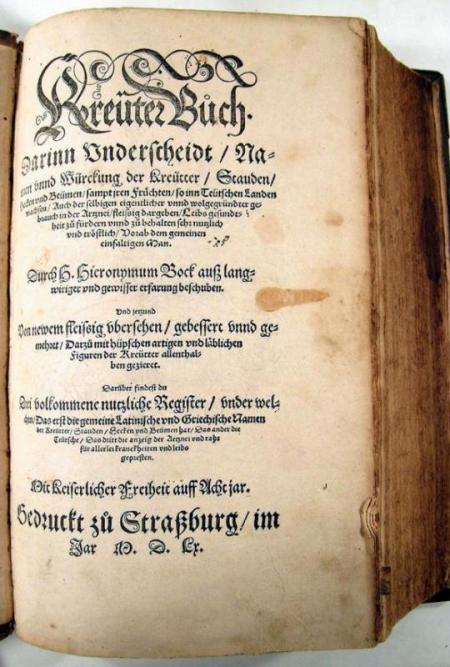 Kreüter Bůch.
Darinn Underscheidt / Na-
men unnd Würckung der Kreütter / Stauden /
Hecken und Beümen / sampt jren Früchten / so inn Teütschen Landen
wachsen / Auch der selbigen eigentlicher unnd wolgegründter ge-
brauch in der Artznei / fleissig dargeben / Leibs gesundt-
heit zů fürdern unnd zů behalten sehr nutzlich
und tröstlich / Vorab dem gemeinen
einfaltigen Man.
Durch H. Hieronymum Bock auß lang-
wiriger und gewisser erfarung beschriben.
Und jetzund
Von newem fleissig ubersehen / gebessert unnd ge-
mehret / Darzů mit hüpschen artigen und läblichen
Figuren der Kreütter allenthal-
ben gezieret.
Darüber findest du
Drei volkommene nutzliche Register / under wel-
chen / Das erst die gemeine Latinische und Griechische Namen
der Kreütter / Stauden / Hecken und Beümen hat / Das ander die
Teütsche / Das dritt die anzeig der Artznei und rahts
für allerlei kranckheiten und leibs
gepresten.
Mit Keiserlicher Freiheit auff Acht jar.
Gedruckt zů Straßburg / im
Jar M. D. Lx.